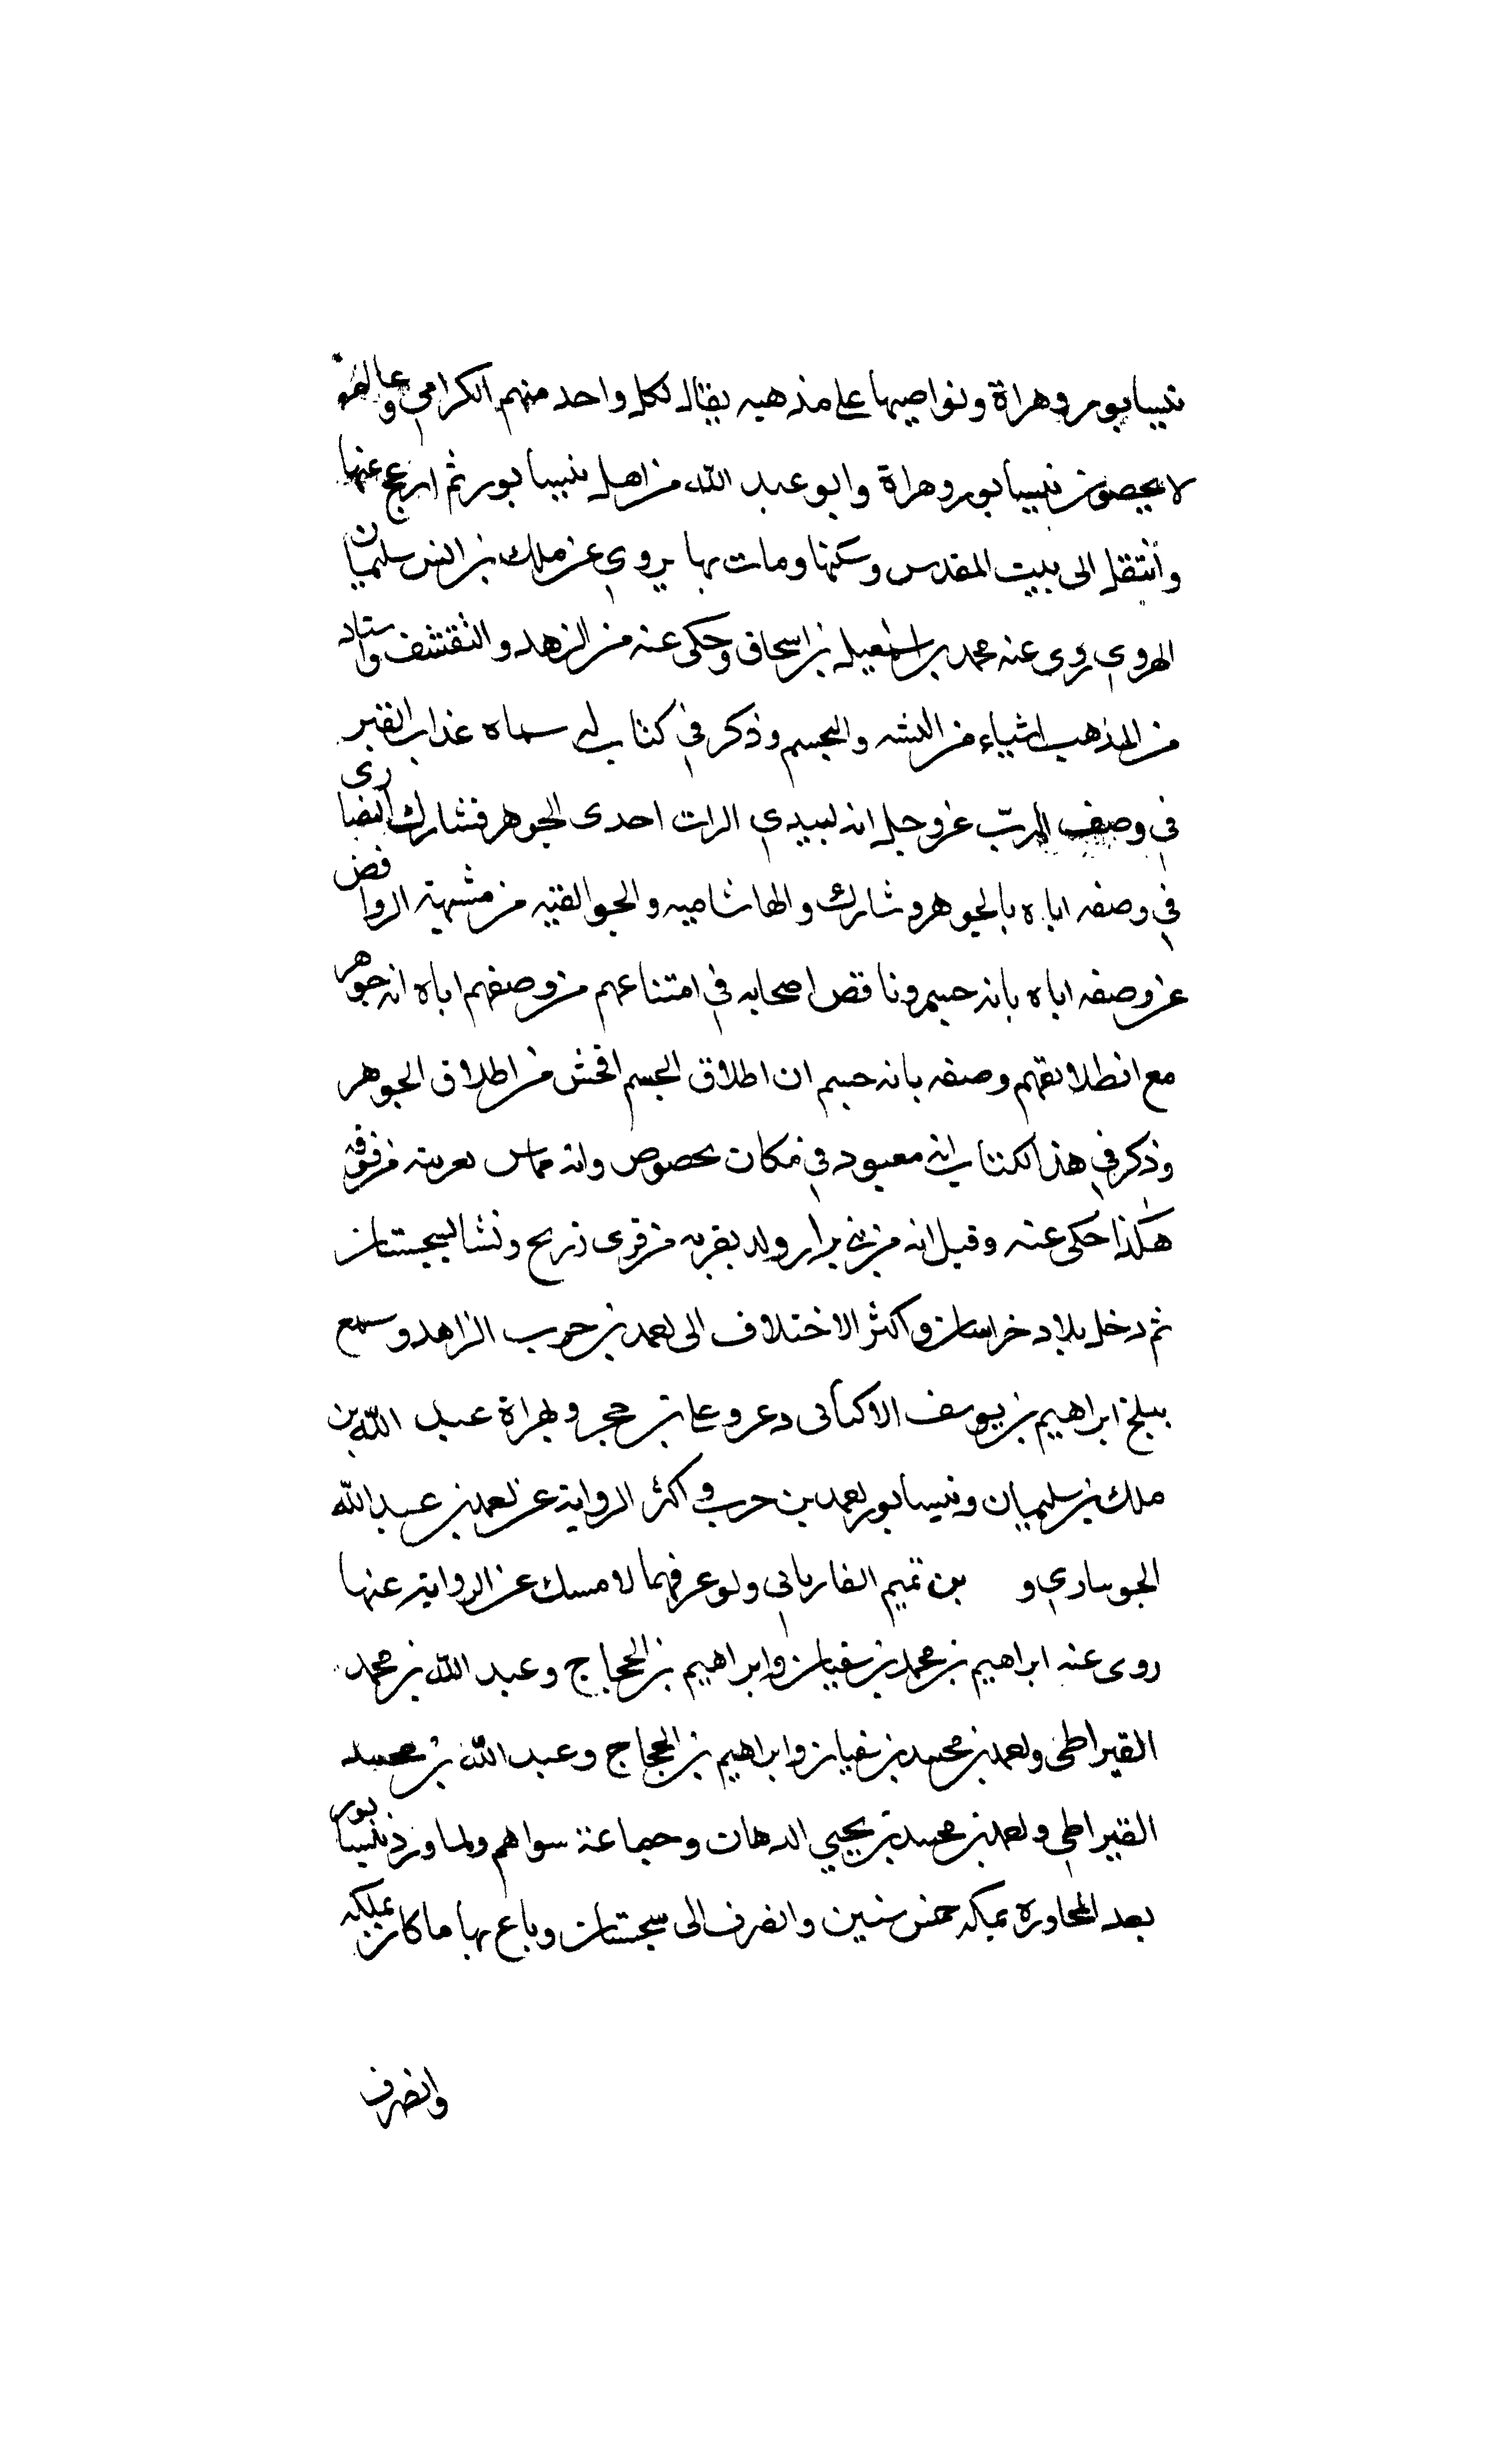 نيسابور وهراة ونواصيها على مذهبه يقال لكل واحد منهم الكرامي وعالم
لا يحصون نيسابور وهراة وابو عبد الله من اهل نيسابور ثم ازعج عنها
وانتقل الى بيت المقدس وسكنها ومات بها يروي عن ملك بن انس سليمان
الهروي روى عنه محمد بن اسمعيل بن اسحاق وحكى عنه من الزهد والتقشف واستاد
من المذهب اشياء من التشبه والتجسم وذكر في كتاب له سماه عذاب القبر
في وصف الرب عز وجل انه لبيدي الرات احدى الجوهر فشارك النصارى
في وصفه اباه بالجوهر وشارك والهاشاميه والجوالقيه من مشبهة الروافض
عن وصفه اباه بانه جسم وناقض اصحابه في امتناعهم من وصفهم اباه انه جوهر
مع انطلاقهم وصفه بانه جسم ان اطلاق الجسم افحش من اطلاق الجوهر
وذكر في هذا الكتاب ان معبوده في مكان مخصوص وانه مماس لعرشه من فوقه
هكذا حكى عنه وقيل انه من بني برار ولد بقريه من قرى زرنج ونشا بسجستان
ثم دخل بلاد خراسان واكثر الاختلاف الى احمد بن حرب الزاهد وسمع
ببلخ ابراهيم بن يوسف الاكناني دعر وعلي بن حجر وبهراة عبد الله بن
ملك بن سليمان وبنيسابور احمد بن حرب واكثر الرواية عن احمد بن عبد الله
الجوساري و بن تميم الفارياني ولو عرفهما لامسك عن الرواية عنها
روى عنه ابراهيم بن محمد بن سفيان وابراهيم بن الحجاج وعبد الله بن محمد
القيراطي واحمد بن محمد بن سفيان وابراهيم بن الحجاج وعبد الله بن محمد
القيراطي واحمد بن محمد بن يحيي الدهات وجماعة سواهم ولما ورد نيسابور
بعد المجاورة بمكه خمس سنين وانصرف الى سجستان وباع بها ما كان يملكه
وانصرف